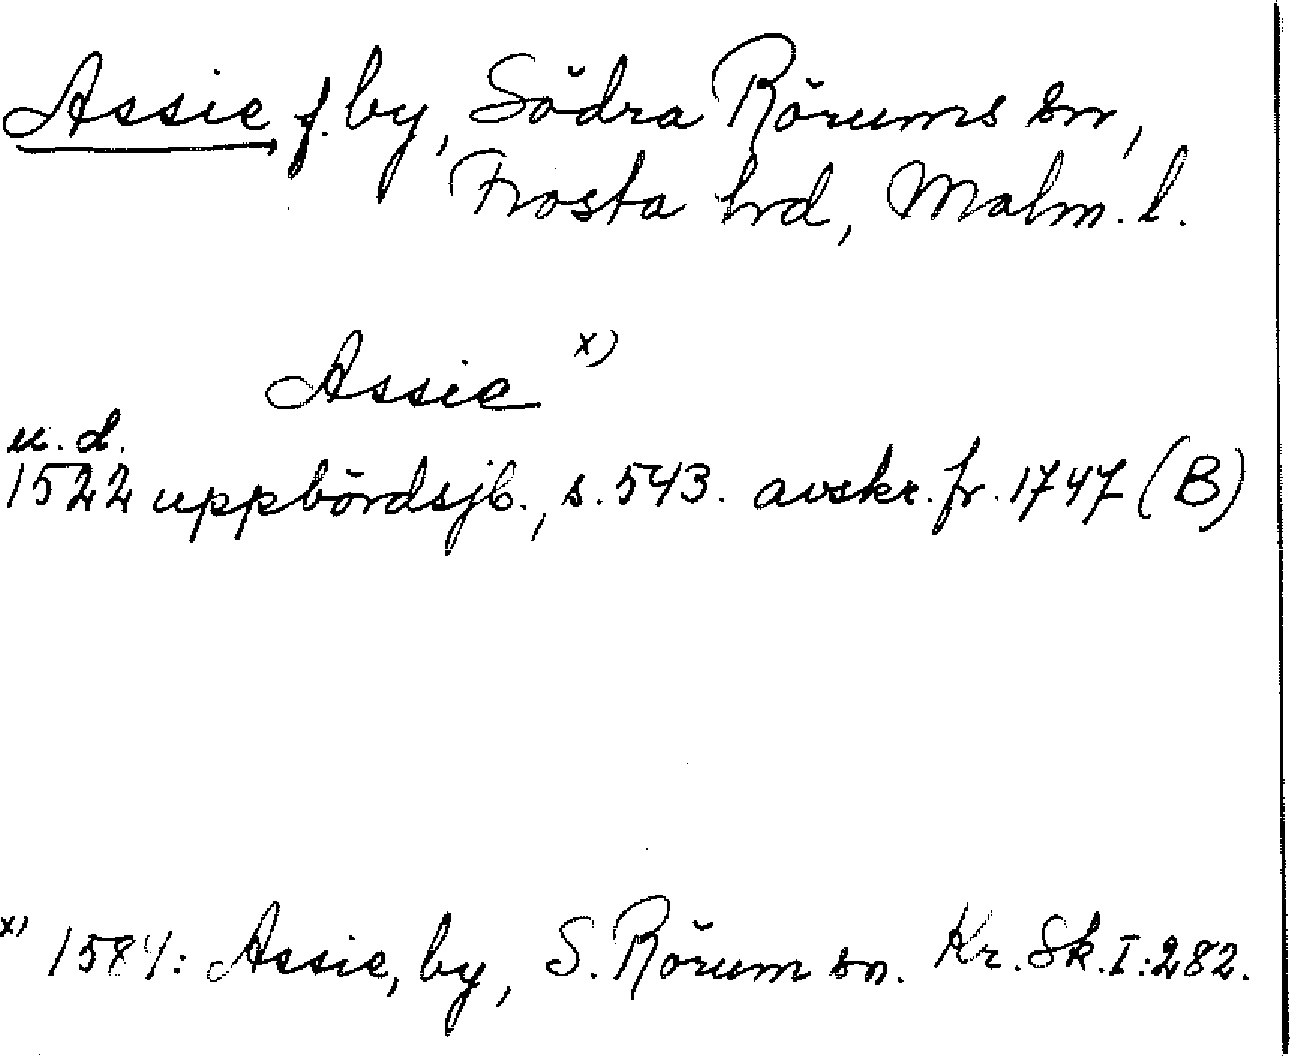 Assie f. by, Södra Rörums sn,
Frosta hrd, Malm. l.
Assie x)
u. d.
1522 uppbördsjb., s. 543. avskr. fr. 1747 (B)
x) 1584: Assie, by, S. Rörum sn. Kr. Sk. I:282.